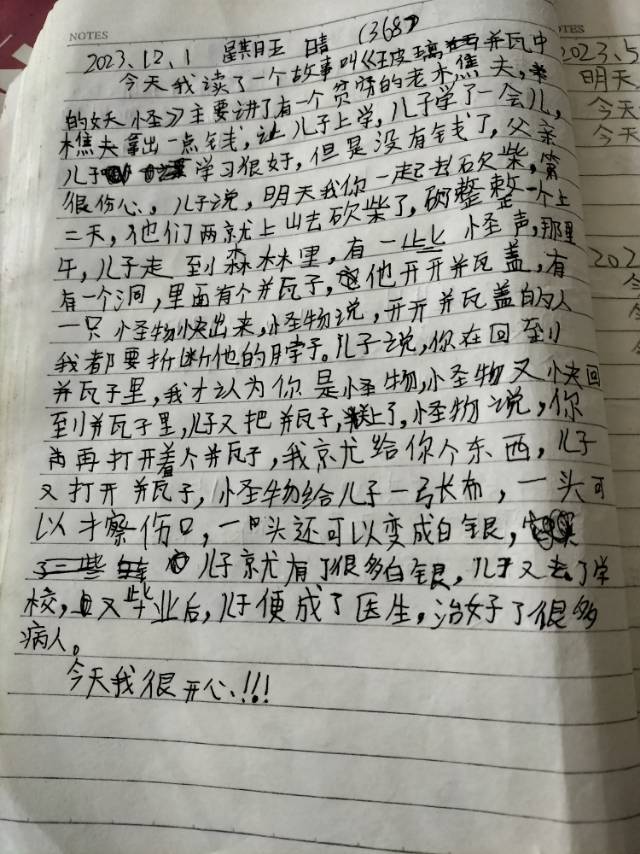 NOTES
2023.12.1 星期五 晴 (368)
今天我读了一个故事叫《玻璃瓶中
的妖怪》主要讲了有一个贫穷的老木樵夫,
樵夫拿出一点钱,让儿子上学,儿子学了一会儿,
儿子学习很好,但是没有钱了,父亲
很伤心。儿子说,明天我你一起去砍柴,第
二天,他们两就上山去砍柴了,砍整整一个上
午,儿子走到森林里,有一些怪声,那里
有一个洞,里面有个瓶子,他开开瓶盖,有
一只怪物快出来,怪物说,开开瓶盖的人
我都要折断他的脖子。儿子说,你在回到
瓶子里,我才认为你是怪物,怪物又快回
到瓶子里,儿子又把瓶子,关上了,怪物说,你
再打开着个瓶子,我就给你个东西,儿子
又打开瓶子,怪物给儿子一张布,一头可
以才察伤口,一头还可以变成白银,
儿子就有了很多白银,儿子又去了学
校,又毕业后,儿子便成了医生,治好了很多
病人。
今天我很开心!!!
TES
2023.5
明天
今天
今天
202